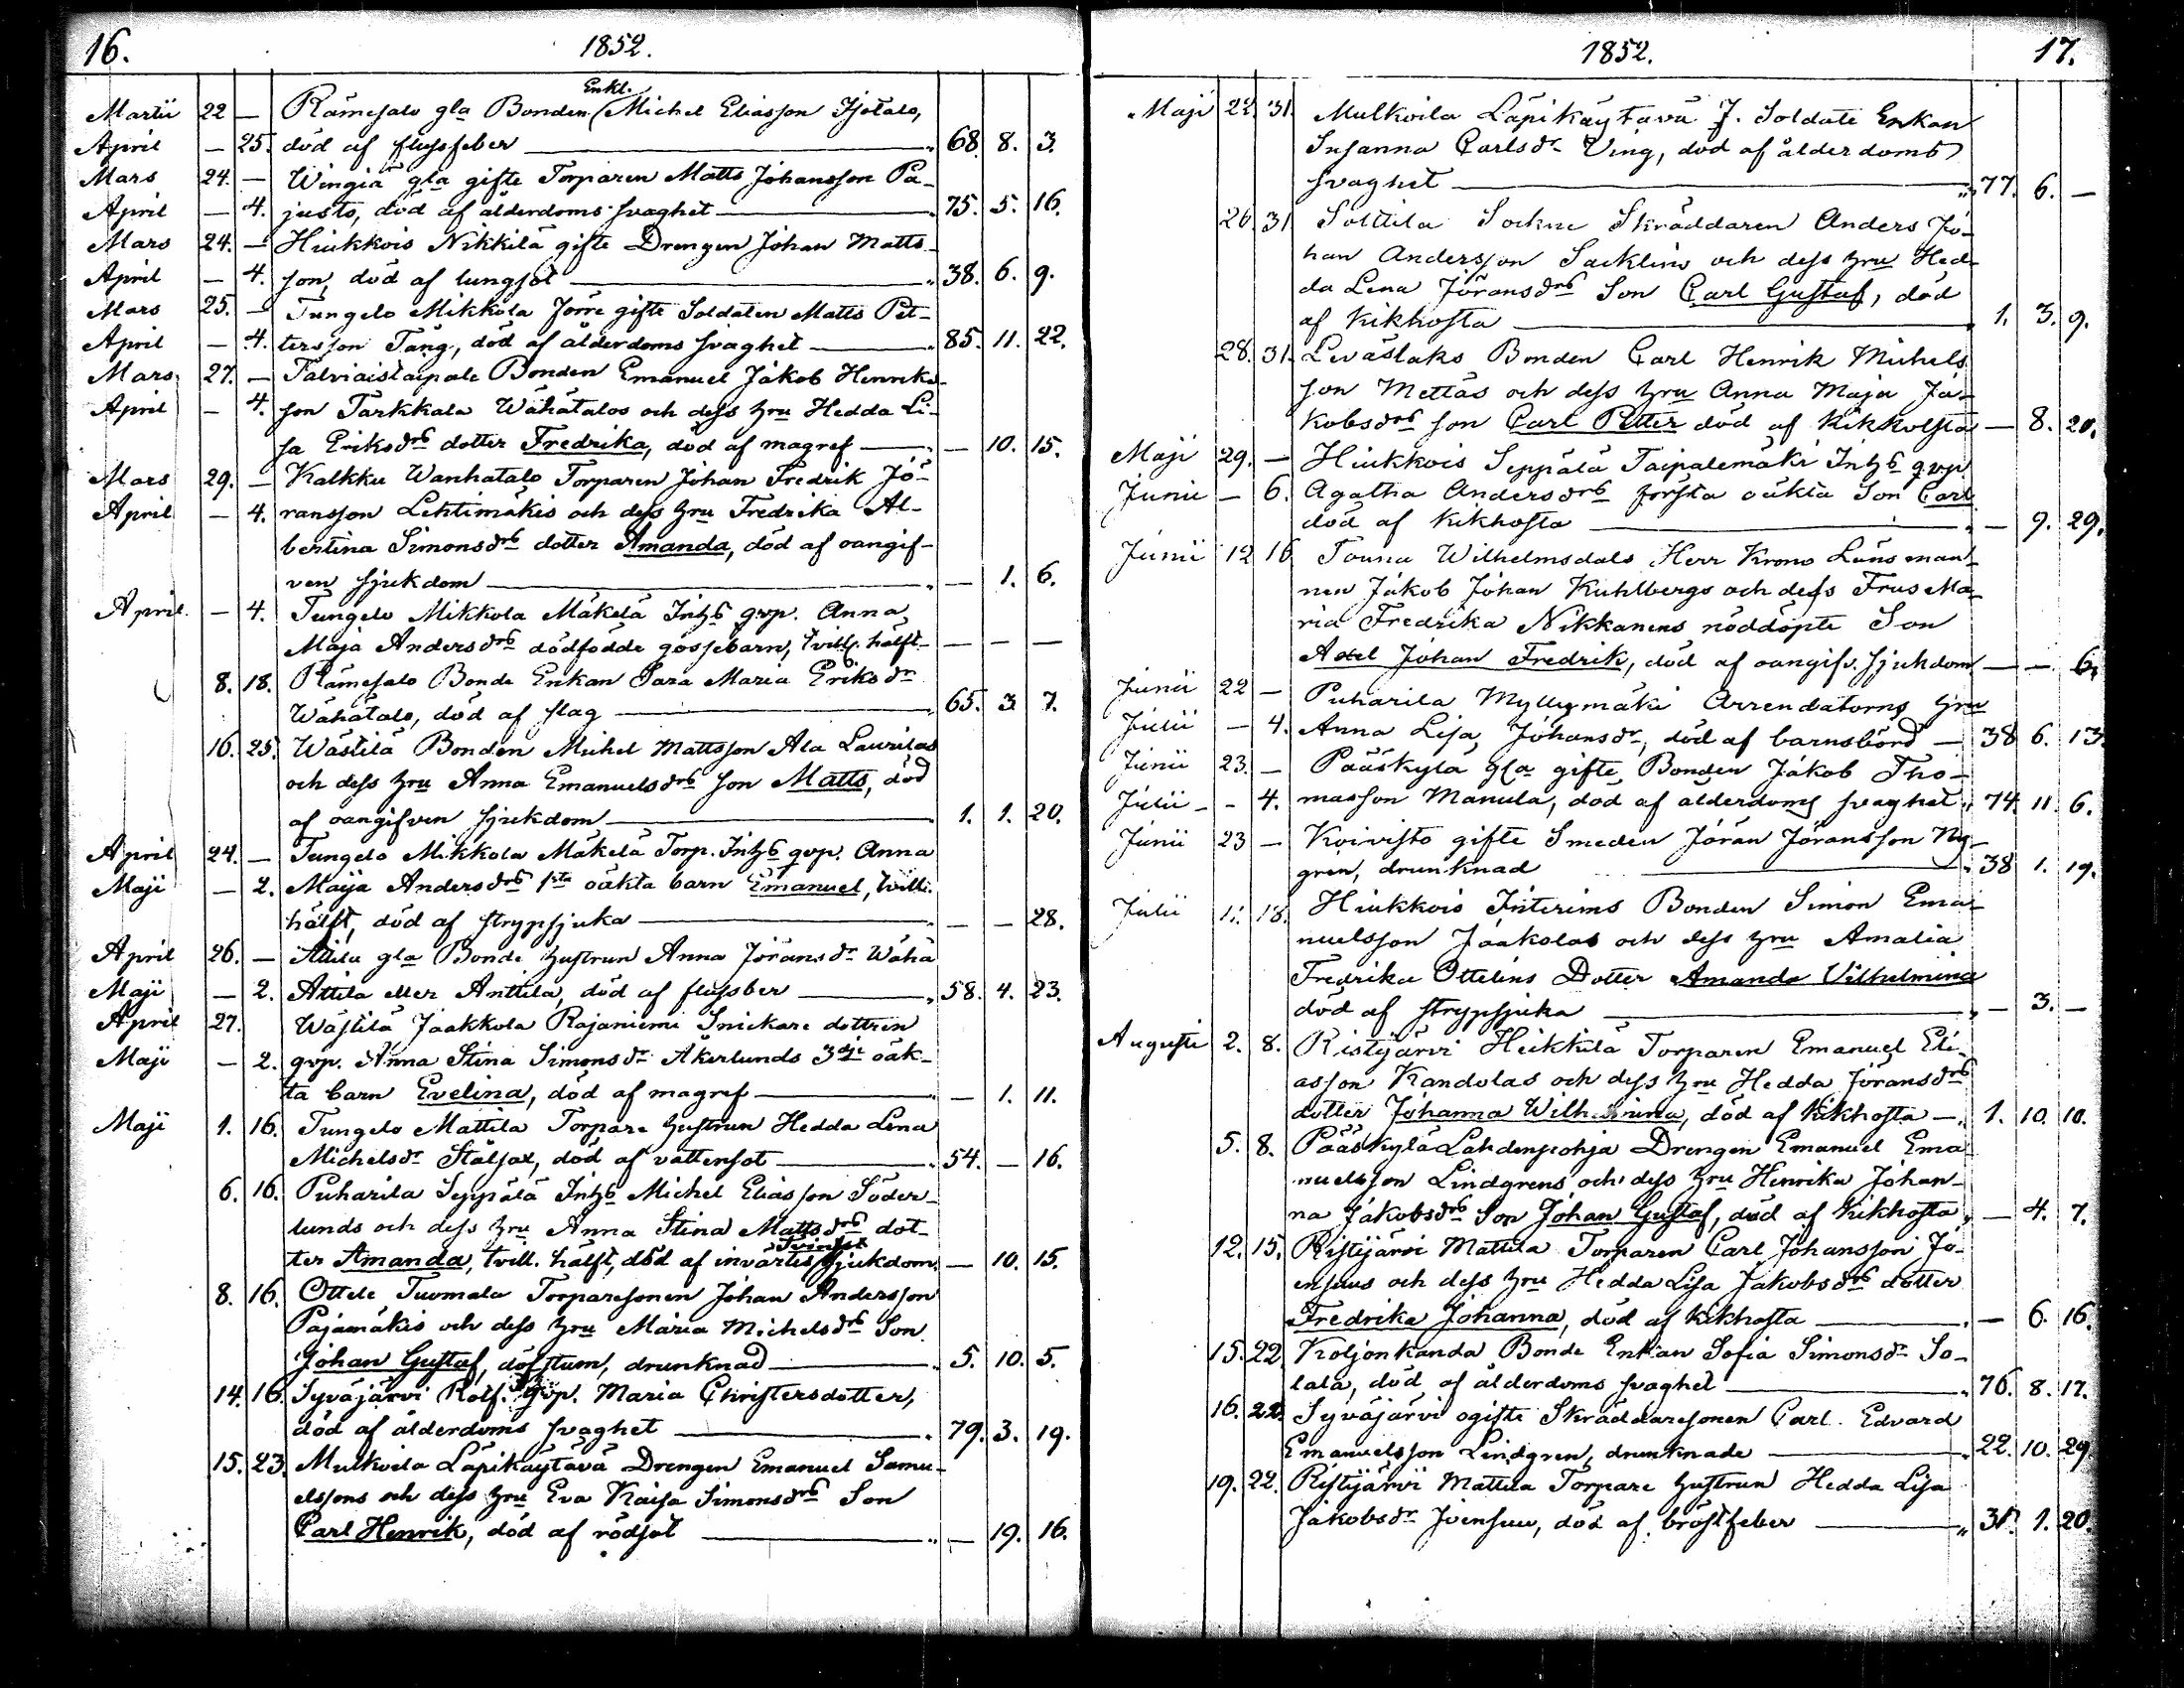 16. 1852.
Enkl.
Martii 22 — Rämesalo gla Bonden (Michel Eliasson Isotalo,
April — 25. död af flussfeber — 68. 8. 3.
Mars 24. — Wingiä gla gifte Torparen Matts Johansson Pa-
April — 4. justo, död af ålderdoms svaghet — 75. 5. 16.
Mars 24. — Hiukkois Nikkilä gifte Drengen Johan Matts-
April — 4. son, död af lungsot — 38. 6. 9.
Mars 25. — Tungelo Mikkola förre gifte Soldaten Matts Pet-
April — 4. tersson Tång, död af ålderdoms svaghet — 85. 11. 22.
Mars 27. — Talviaistaipale Bonden Emanuel Jakob Henriks-
April — 4. son Tarkkala Wähätalos och dess hru Hedda Li-
sa Eriksdrs dotter Fredrika, död af magref — — 10. 15.
Mars 29. — Kalkku Wanhatalo Torparen Johan Fredrik Jö-
April — 4. ransson Lehtimäkis och dess hru Fredrika Al-
bertina Simonsdrs dotter Amanda, död af oangif-
ven sjukdom — — 1. 6.
April — 4. Tungelo Mikkola Mäkelä Inhs qvp. Anna
Maja Andersdrs dödfödde gossebarn, tvill. hälft — — —
8. 18. Rämesalo Bonde Enkan Sara Maria Eriksdr
Wähätalo, död af slag — 65. 3. 7.
16. 25. Wästilä Bonden Michel Mattsson Ala Laurilas
och dess hru Anna Emanuelsdrs son Matts, död
af oangifven sjukdom — 1. 1. 20.
April 24. — Tungelo Mikkola Mäkelä Torp. Inhs qvp. Anna
Maji — 2. Maija Andersdrs 1sta oäkta barn Emanuel, tvill.
hälft, död af strypsjuka — — — 28.
April 26. — Attila gla Bonde hustrun Anna Jöransdr Wähä
Maji — 2. Attila eller Anttila, död af flussber — 58. 4. 23.
April 27. Wästilä Jaakkola Rajaniemi Snickare dottren
Maji — 2. qvp. Anna Stina Simonsdr Åkerlunds 3dje oäk-
ta barn Evelina, död af magref — — 1. 11.
Maji 1. 16. Tungelo Mattila Torpare hustrun Hedda Lena
Michelsdr Stålsax, död af vattensot — 54. — 16.
6. 16. Puharila Seppälä Inhs Michel Eliasson Söder-
lunds och dess hru Anna Stina Mattsdrs dot-
ter Amanda, tvill. hälft, död af invärtes sjukdom. — 10. 15.
8. 16. Ottele Tuomala Torparesonen Johan Andersson
Pajamäkis och dess hru Maria Michelsdrs Son
Johan Gustaf, döfstum, drunknad — 5. 10. 5.
14. 16. Syväjärvi Rotf. qvp. Maria Christersdotter,
död af ålderdoms svaghet — 79. 3. 19.
15. 23. Mulkoila Läpikäytävä Drengen Emanuel Samu-
elssons och dess hru Eva Kaisa Simonsdrs Son
Carl Henrik, död af rödsot — — 19. 16.
1852. 17.
Maji 22. 31. Mulkoila Läpikäytävä f. Soldate Enkan
Susanna Carlsdr Ving, död af ålderdoms
svaghet — 77. 6. —
26. 31 Solttila Sockne Skräddaren Anders Jo-
han Andersson Sacklins och dess hru Hed-
da Lena Jöransdrs Son Carl Gustaf, död
af Kikhosta — 1. 3. 9.
28. 31. Leväslaks Bonden Carl Henrik Michels
son Mettäs och dess hru Anna Maja Ja-
kobsdrs son Carl Petter död af Kikkolsta — 8. 20.
Maji 29. — Hiukkois Seppälä Taipalemäki Inhs qvp
Junii — 6. Agatha Andersdrs första oäkta Son Carl
död af Kikhosta — — 9. 29.
Junii 12 16 Touna Wilhelmsdals Herr Krono Länsman-
nen Jakob Johan Kuhlbergs och dess Frus Ma-
ria Fredrika Nikkanens nöddöpte Son
Axel Johan Fredrik, död af oangifv. sjukdom — — 6.
Junii 22 — Puharila Myllymäki Arrendatorns hru
Julii — 4. Anna Lisa, Johansdr, död af barnsbörd — 38 6. 13.
Junii 23. — Pääskylä gla gifte Bonden Jakob Tho-
Julii — 4. masson Manula, död af ålderdoms svaghet 74. 11 6.
Junii 23 — Koivisto gifte Smeden Jöran Jöransson Ny-
gren, drunknad — 38 1. 19.
Julii 11. 18. Hiukkois Interims Bonden Simon Ema-
nuelsson Jaakolas och dess hru Amalia
Fredrika Ottelins Dotter Amanda Vilhelmina
död af strypsjuka — — 3. —
Augusti 2. 8. Ristijärvi Heikkilä Torparen Emanuel Eli-
asson Kandolas och dess hru Hedda Jöransdrs
dotter Johanna Wilhelmina, död af Kikhosta — 1. 10. 10.
5. 8. Pääskylä Lahdenpohja Drengen Emanuel Ema-
nuelsson Lindgrens och dess hru Henrika Johan-
na Jakobsdrs Son Johan Gustaf, död af Kikhosta — 4. 7.
12. 15. Ristijärvi Mattila Torparen Carl Johansson Jo-
ensuus och dess hru Hedda Lisa Jakobsdrs dotter
Fredrika Johanna, död af Kikhosta — — 6. 16.
15. 22 Koljonkanda Bonde Enkan Sofia Simonsdr So-
lala, död af ålderdoms svaghet — 76. 8. 17.
16. 22. Syväjärvi ogifte Skräddaresonen Carl Edvard
Emanuelsson Lindgren, drunknade — 22. 10. 29.
19. 22. Ristijärvi Mattila Torpare hustrun Hedda Lisa
Jakobsdr Joensuu, död af bröstfeber — 31. 1. 20.